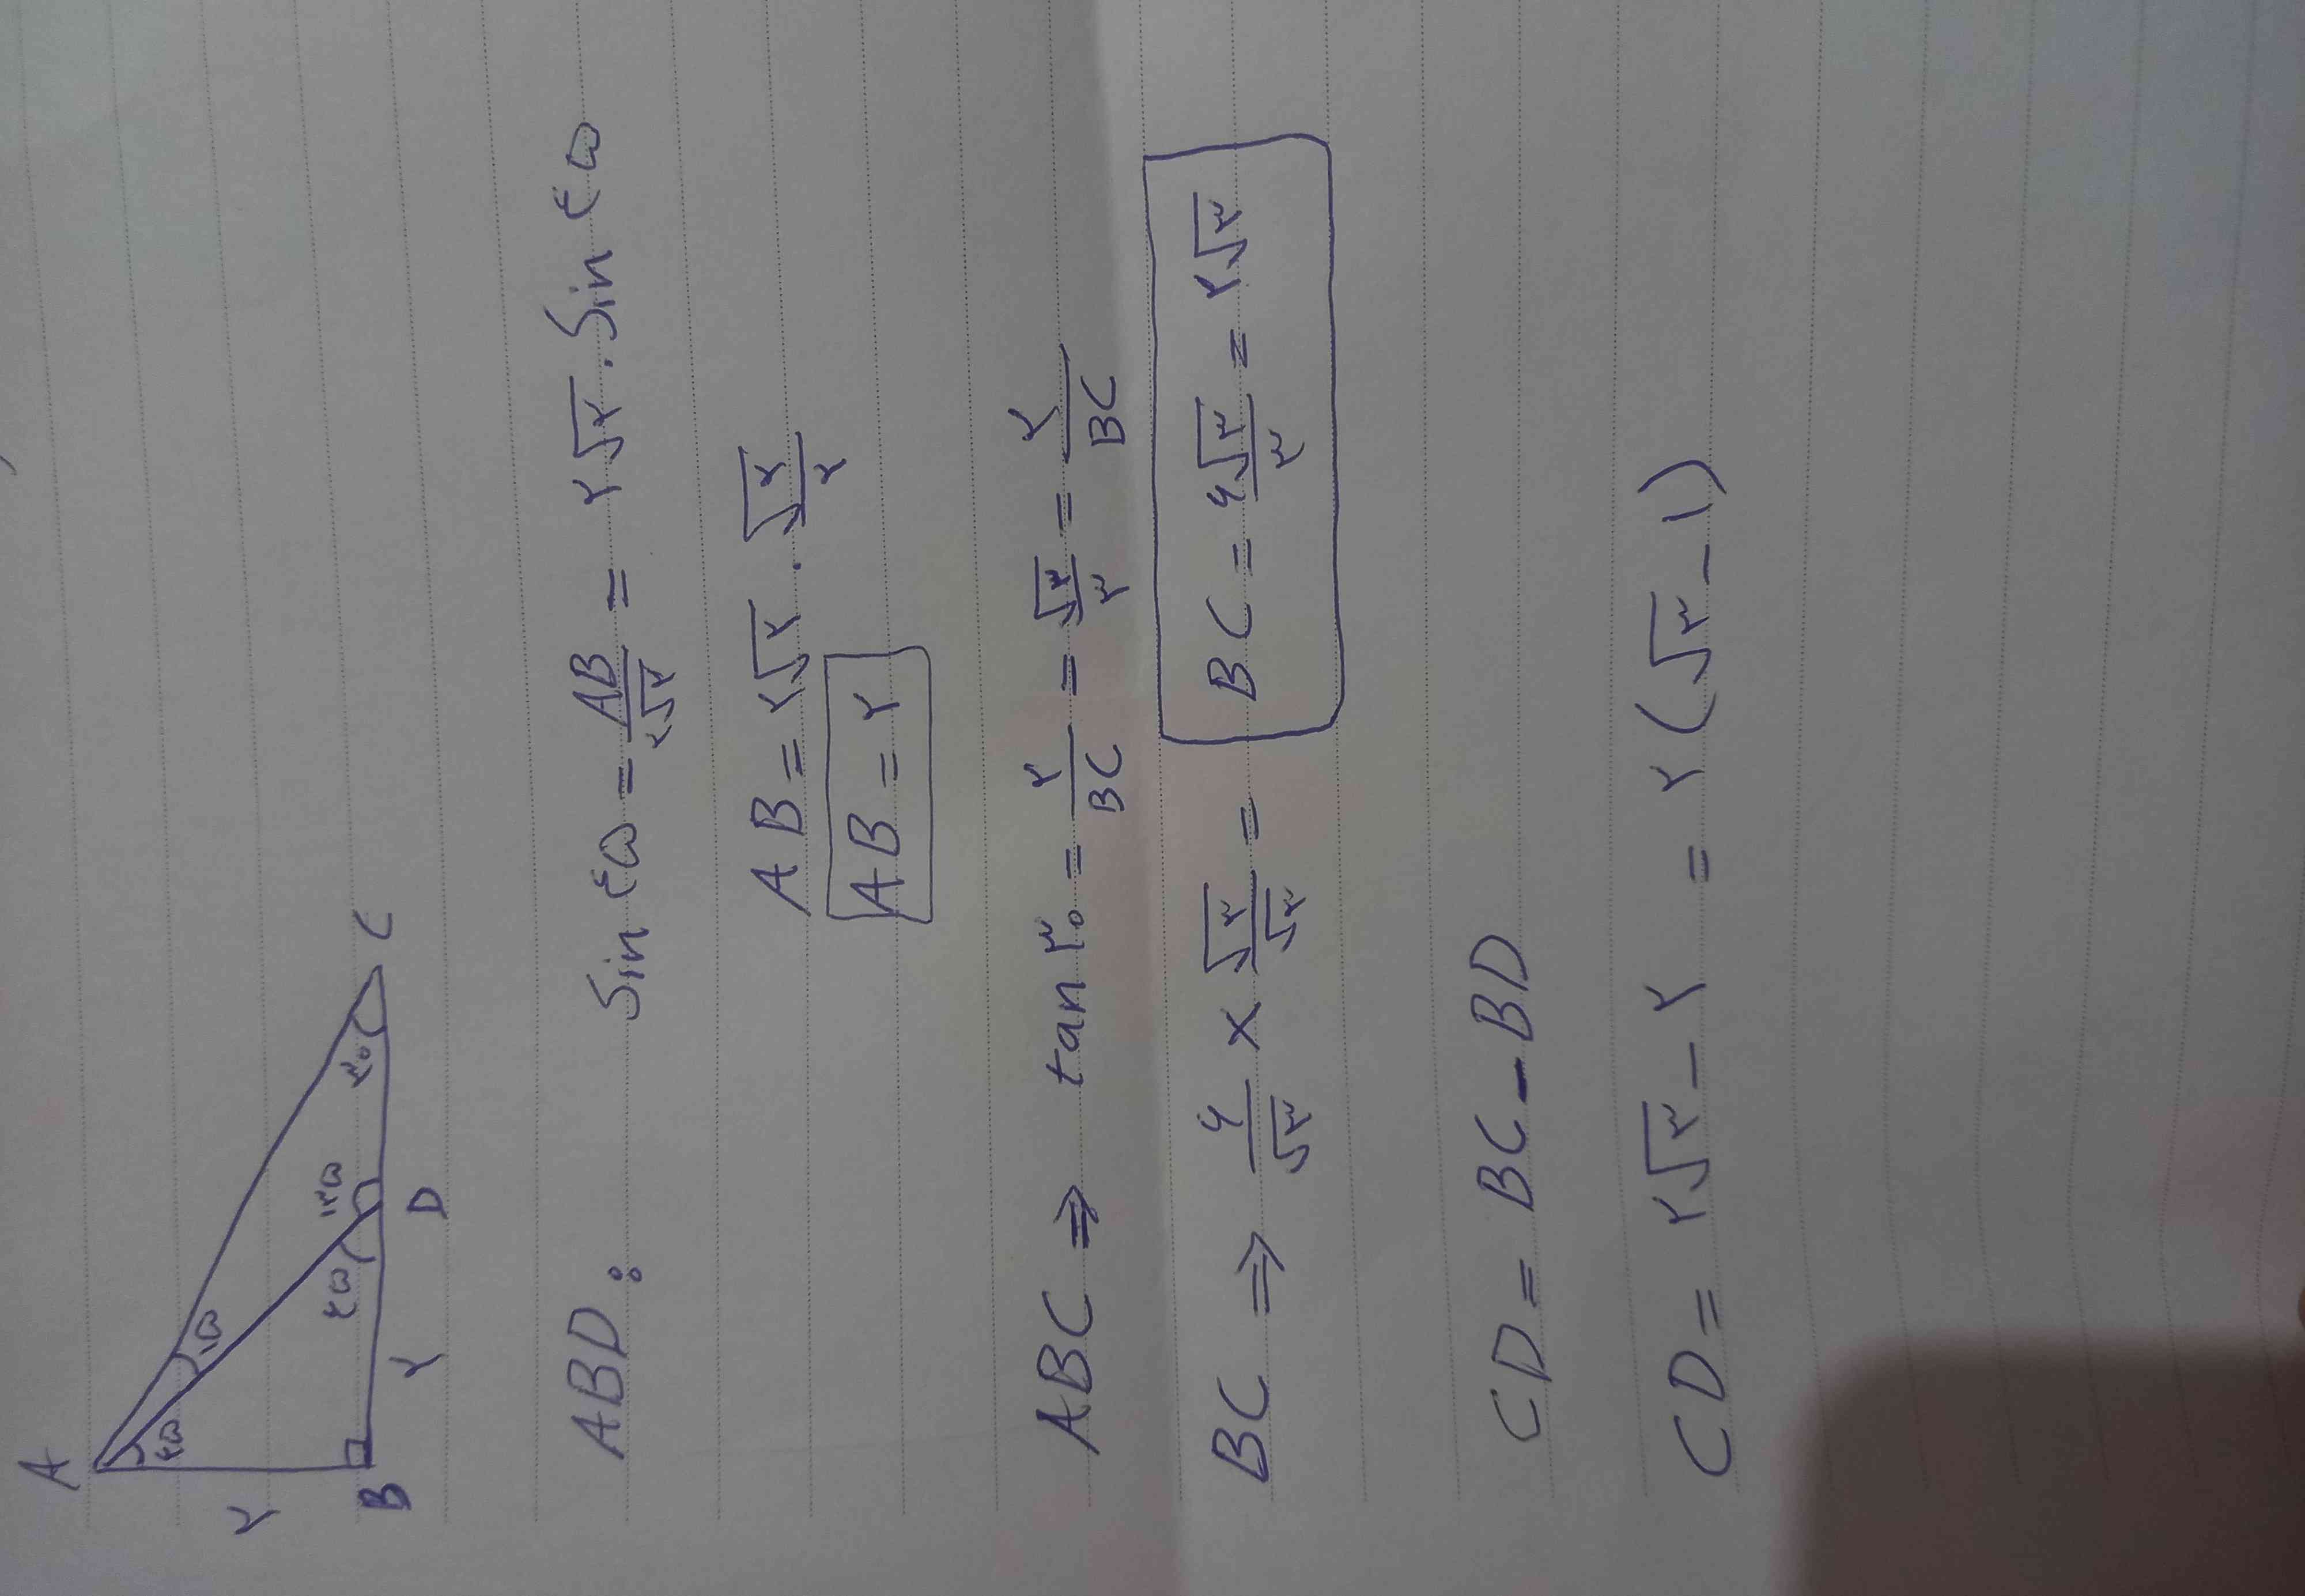 A
۴۵
۱۵
۲
۴۵
۱۳۵
۳۰
B
۲
D
C
ABD: Sin ۴۵ = AB/۲√۲ = ۲√۲ . Sin ۴۵
AB = ۲√۲ . √۲/۲
AB = ۲
ABC ⇒ tan ۳۰ = ۲/BC = √۳/۳ = ۲/BC
BC ⇒ ۶/√۳ × √۳/√۳ = BC = ۶√۳/۳ = ۲√۳
CD = BC - BD
CD = ۲√۳ - ۲ = ۲(√۳ - ۱)